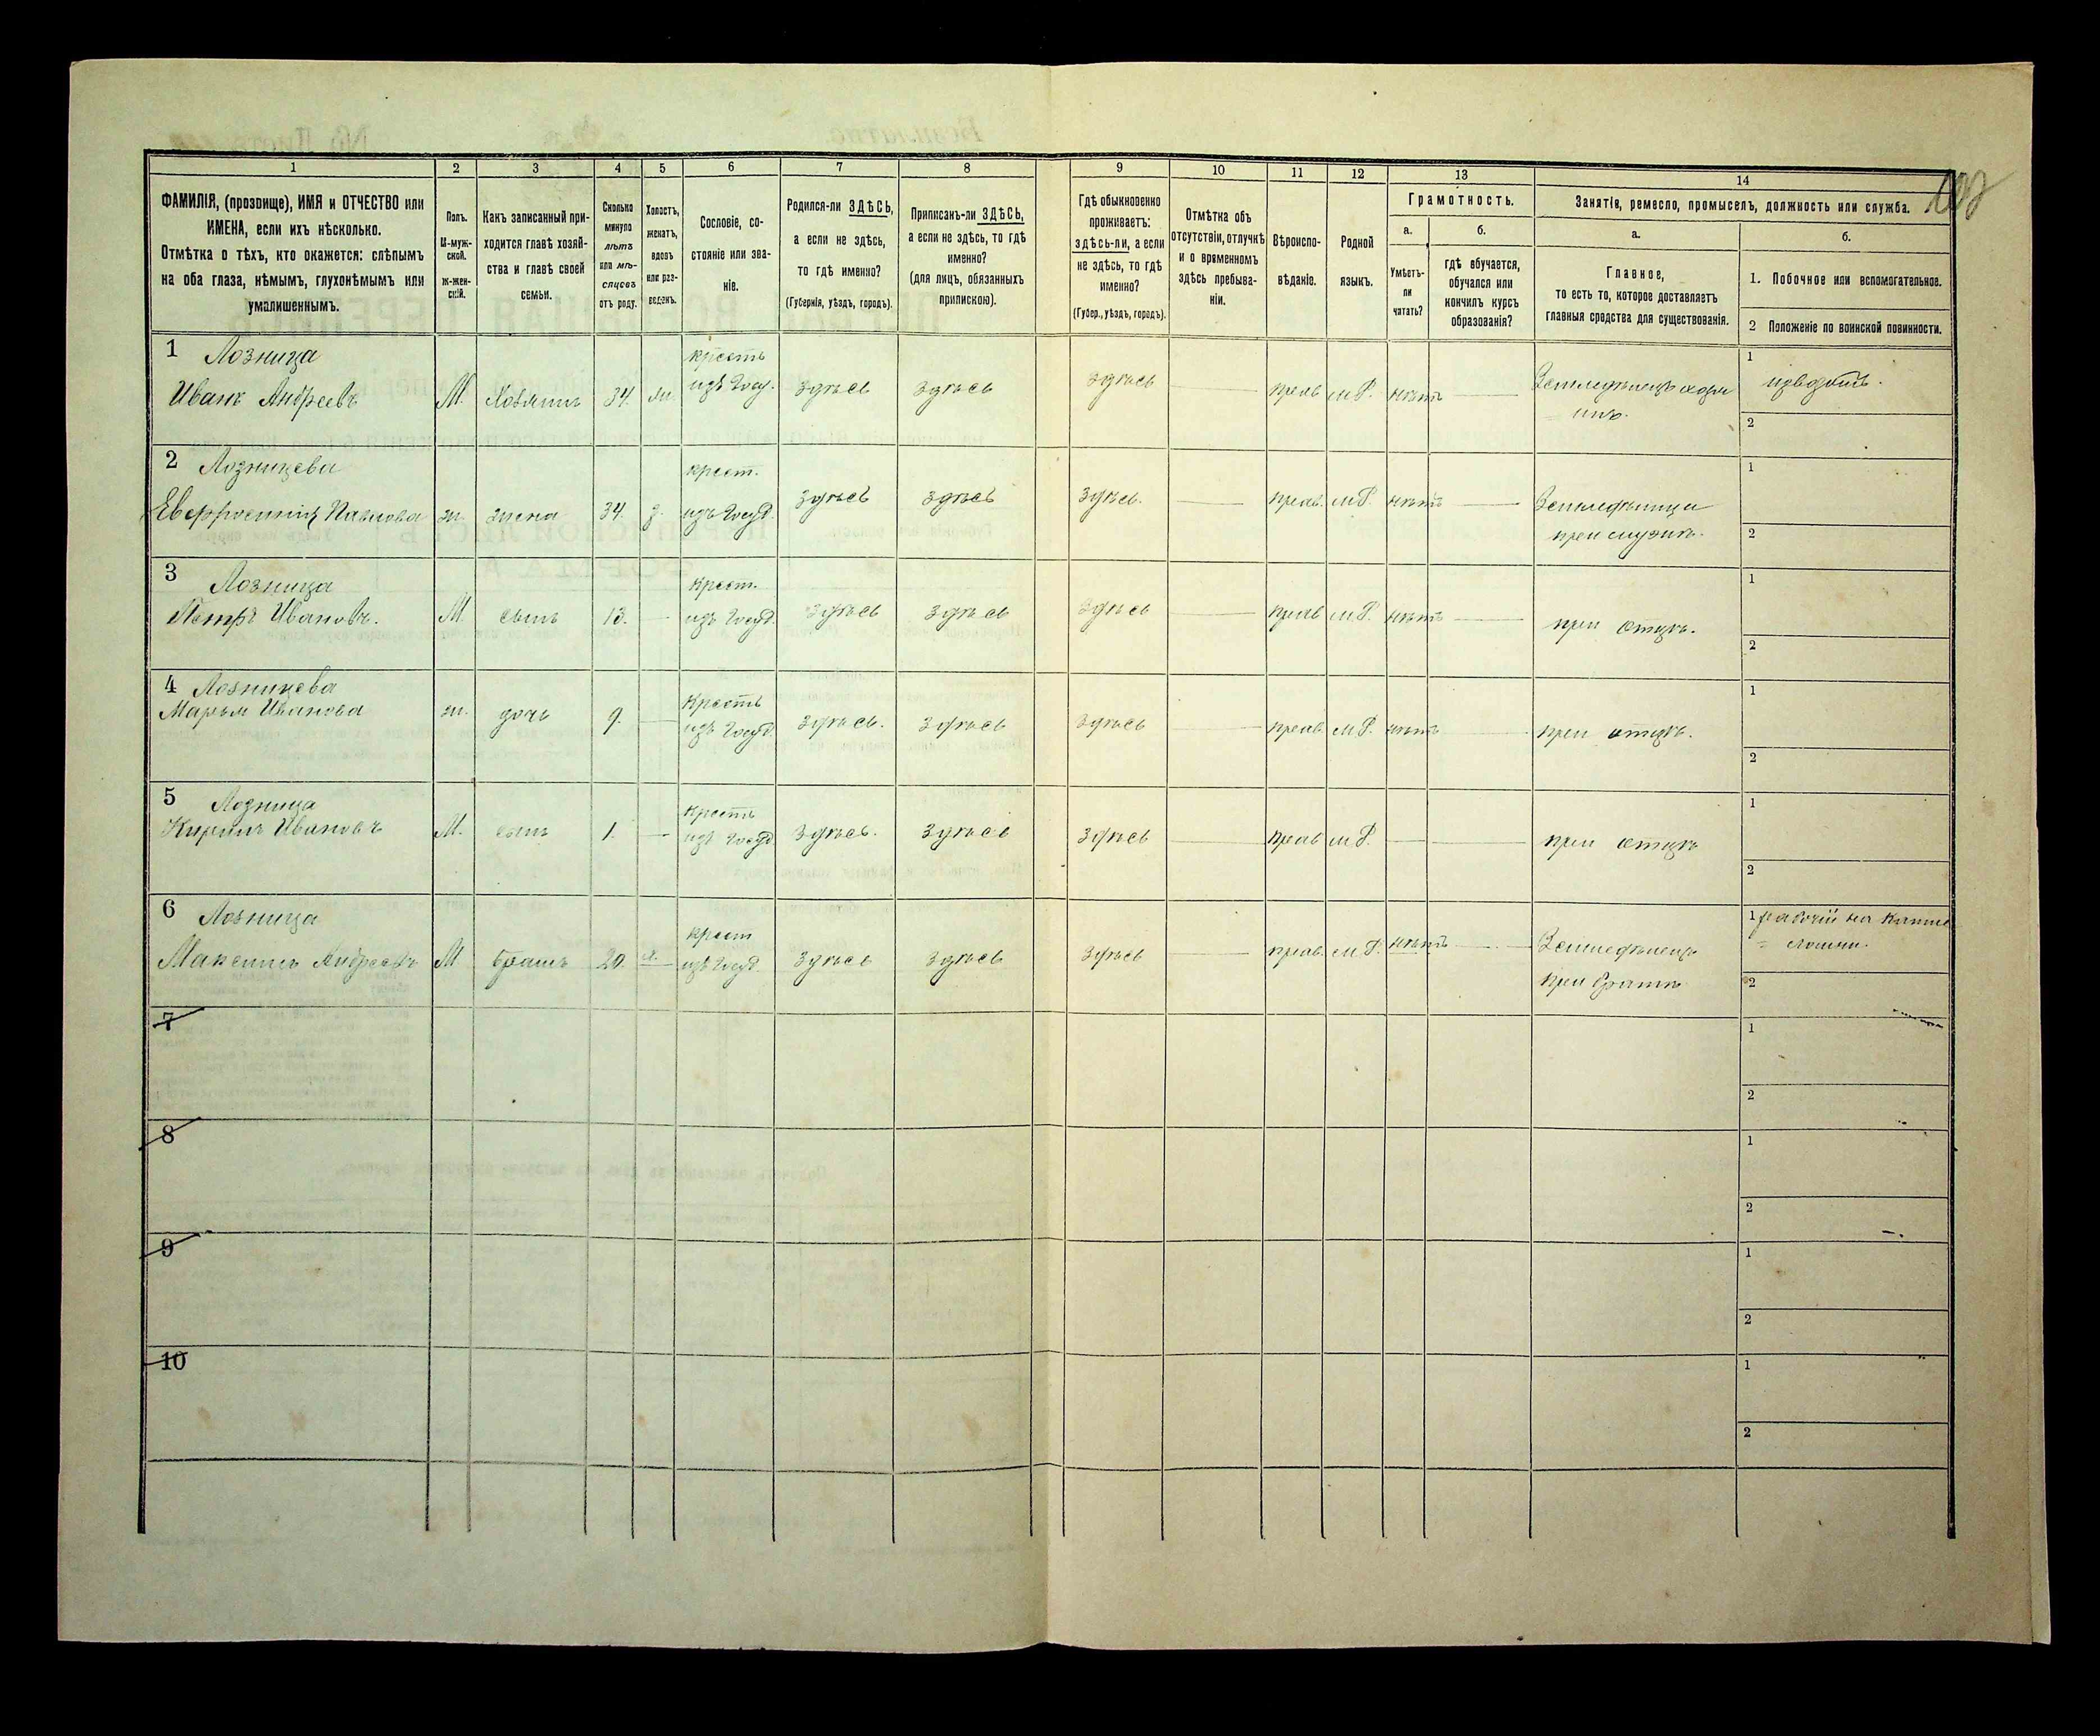 1 2 3 4 5 6 7 8 9 10 11 12 13 14
ФАМИЛІЯ, (прозвище), ИМЯ и ОТЧЕСТВО или
ИМЕНА, если ихъ нѣсколько.
Отмѣтка о тѣхъ, кто окажется: слѣпымъ
на оба глаза, нѣмымъ, глухонѣмымъ или
умалишеннымъ.
Полъ.
М-муж-
ской.
ж-жен-
скій.
Какъ записанный при-
ходится главѣ хозяй-
ства и главѣ своей
семьи.
Сколько
минуло
лѣтъ
или мѣ-
сяцевъ
отъ роду.
Холостъ,
женатъ,
вдовъ
или раз-
веденъ.
Сословіе, со-
стояніе или зва-
ніе.
Родился-ли ЗДѢСЬ,
а если не здѣсь,
то гдѣ именно?
(Губернія, уѣздъ, городъ).
Приписанъ-ли ЗДѢСЬ,
а если не здѣсь, то гдѣ
именно?
(для лицъ, обязанныхъ
припискою).
Гдѣ обыкновенно
проживаетъ:
здѣсь-ли, а если
не здѣсь, то гдѣ
именно?
(Губер., уѣздъ, городъ).
Отмѣтка объ
отсутствіи, отлучкѣ
и о временномъ
здѣсь пребыва-
ніи.
Вѣроиспо-
вѣданіе.
Родной
языкъ.
Грамотность.
а.
Умѣетъ-
ли
читать?
б.
гдѣ обучается,
обучался или
кончилъ курсъ
образованія?
Занятіе, ремесло, промыселъ, должность или служба.
а.
Главное,
то есть то, которое доставляетъ
главныя средства для существованія.
б.
1. Побочное или вспомогательное.
2 Положеніе по воинской повинности.
1 Лозница
Иванъ Андреевъ М. Хозяинъ 34. крестъ
изъ Госу. здѣсь здѣсь здѣсь прав м.Р. нѣтъ Земледѣлецъ хозя
инъ.
1 извозъ.
2
2 Лозницева
Евфросинія Павлова ж. жена 34. з. крест.
изъ Госуд. здѣсь здѣсь здѣсь. прав. м.Р. нѣтъ Земледѣлица
при мужѣ.
1
2
3 Лозница
Петръ Ивановъ. М. сынъ 13. крест.
изъ Госуд. здѣсь здѣсь здѣсь прав м.Р. нѣтъ при отцѣ.
1
2
4 Лозницева
Марья Иванова ж. дочь 9. Крестъ
изъ Госуд. здѣсь. здѣсь здѣсь прав. м.Р. нѣтъ при отцѣ.
1
2
5 Лозница
Кирилъ Ивановъ М. сынъ 1. Крестъ
изъ Госуд. здѣсь. здѣсь здѣсь прав м.Р. при отцѣ
1
2
6 Лозница
Максимъ Андреевъ М братъ 20. х. крест
изъ Госуд. здѣсь здѣсь здѣсь прав. м.Р. нѣтъ Земледѣлецъ
при братѣ
1 рабочій на
2
7
1
2
8
1
2
9
1
2
10
1
2